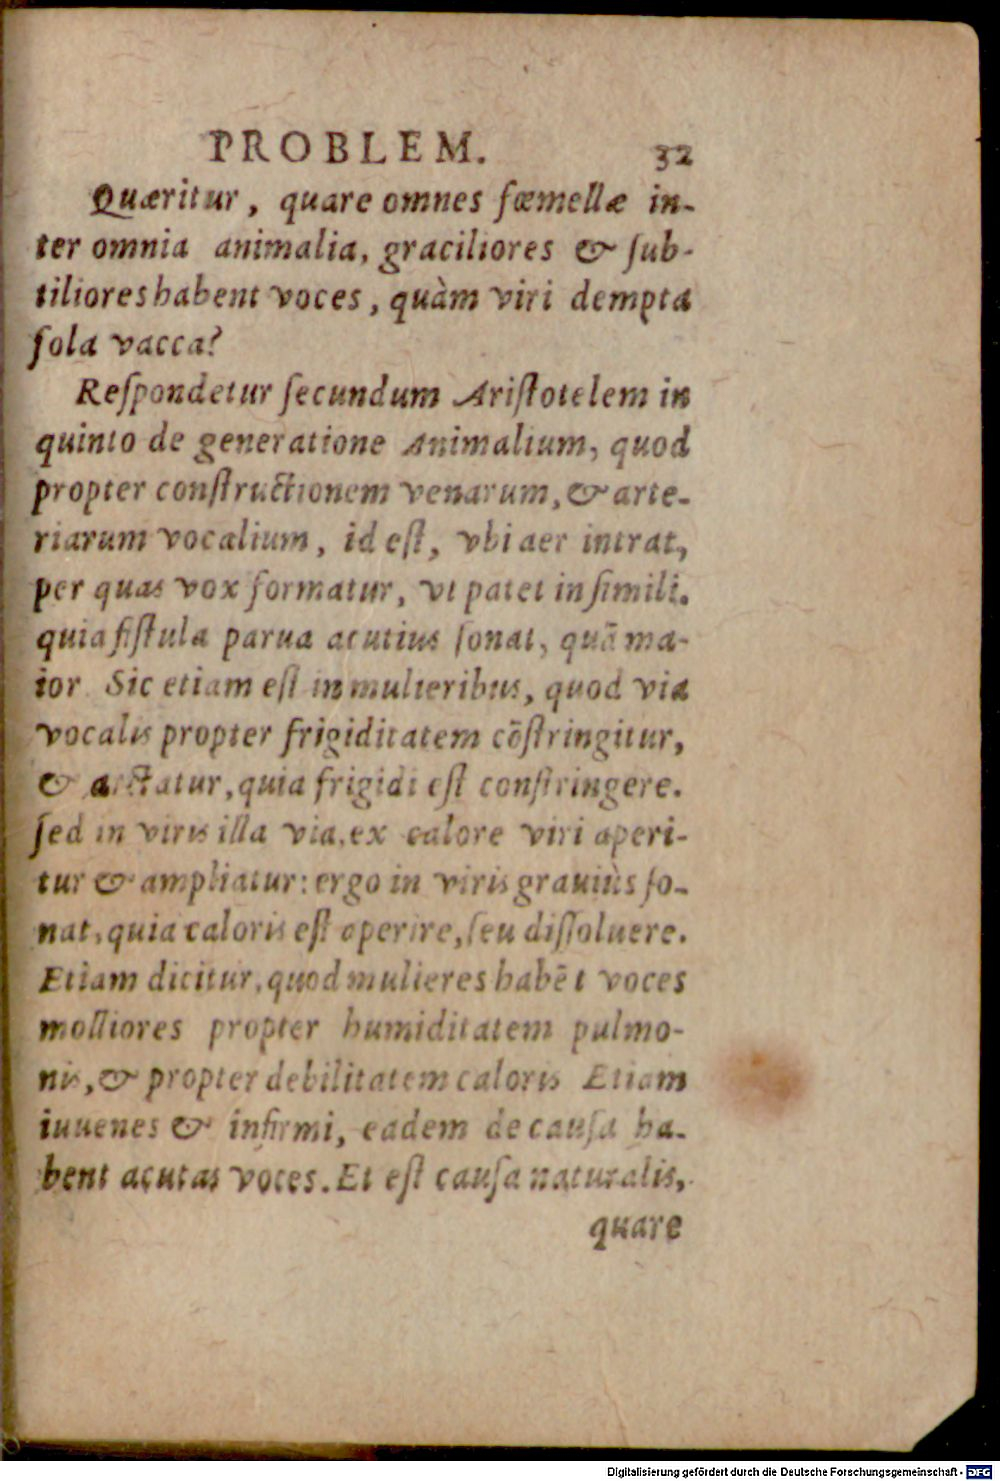 PROBLEM. 32
Quæritur, quare omnes fœmellæ in-
ter omnia animalia, graciliores & ſub-
tiliores habent voces, quàm viri dempta
ſola vacca?
Reſpondetur ſecundum Ariſtotelem in
quinto de generatione Animalium, quod
propter conſtructionem venarum, & arte-
riarum vocalium, id eſt, vbi aer intrat,
per quas vox formatur, vt patet in ſimili.
quia fiſtula parua acutius ſonat, quã ma-
ior. Sic etiam eſt in mulieribus, quod via
vocalis propter frigiditatem cõſtringitur,
& arctatur, quia frigidi eſt conſtringere.
ſed in viris illa via, ex calore viri aperi-
tur & ampliatur: ergo in viris grauiùs ſo-
nat, quia caloris eſt aperire, ſeu diſſoluere.
Etiam dicitur, quod mulieres habẽt voces
molliores propter humiditatem pulmo-
nis, & propter debilitatem caloris Etiam
iuuenes & infirmi, eadem de cauſa ha-
bent acutas voces. Et eſt cauſa naturalis,
quare
Digitalisierung gefördert durch die Deutsche Forschungsgemeinschaft - DFG